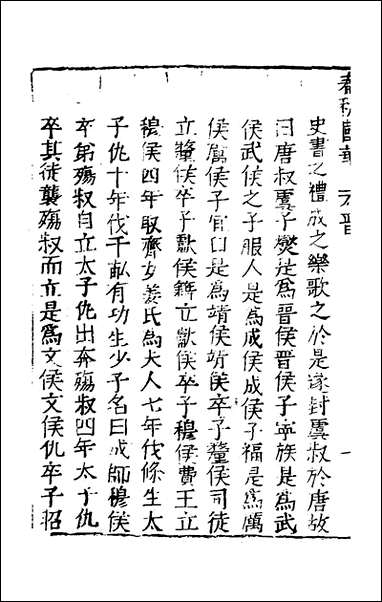 春秋
晉
一
史書之禮成之樂歌之於是遂封虞叔於唐故
曰唐叔虞子燮是為晉侯晉侯子寧族是為武
侯武侯之子服人是為成侯成侯子福是為厲
侯厲侯子官臼是為靖侯靖侯卒子釐侯司徒
立釐侯卒子獻侯籍立獻侯卒子穆侯費王立
穆侯四年取齊女姜氏為夫人七年伐條生太
子仇十年伐千畝有功生少子名曰成師穆侯
卒弟殤叔自立太子仇出奔殤叔四年太子仇
卒其徒襲殤叔而立是為文侯文侯仇卒子招